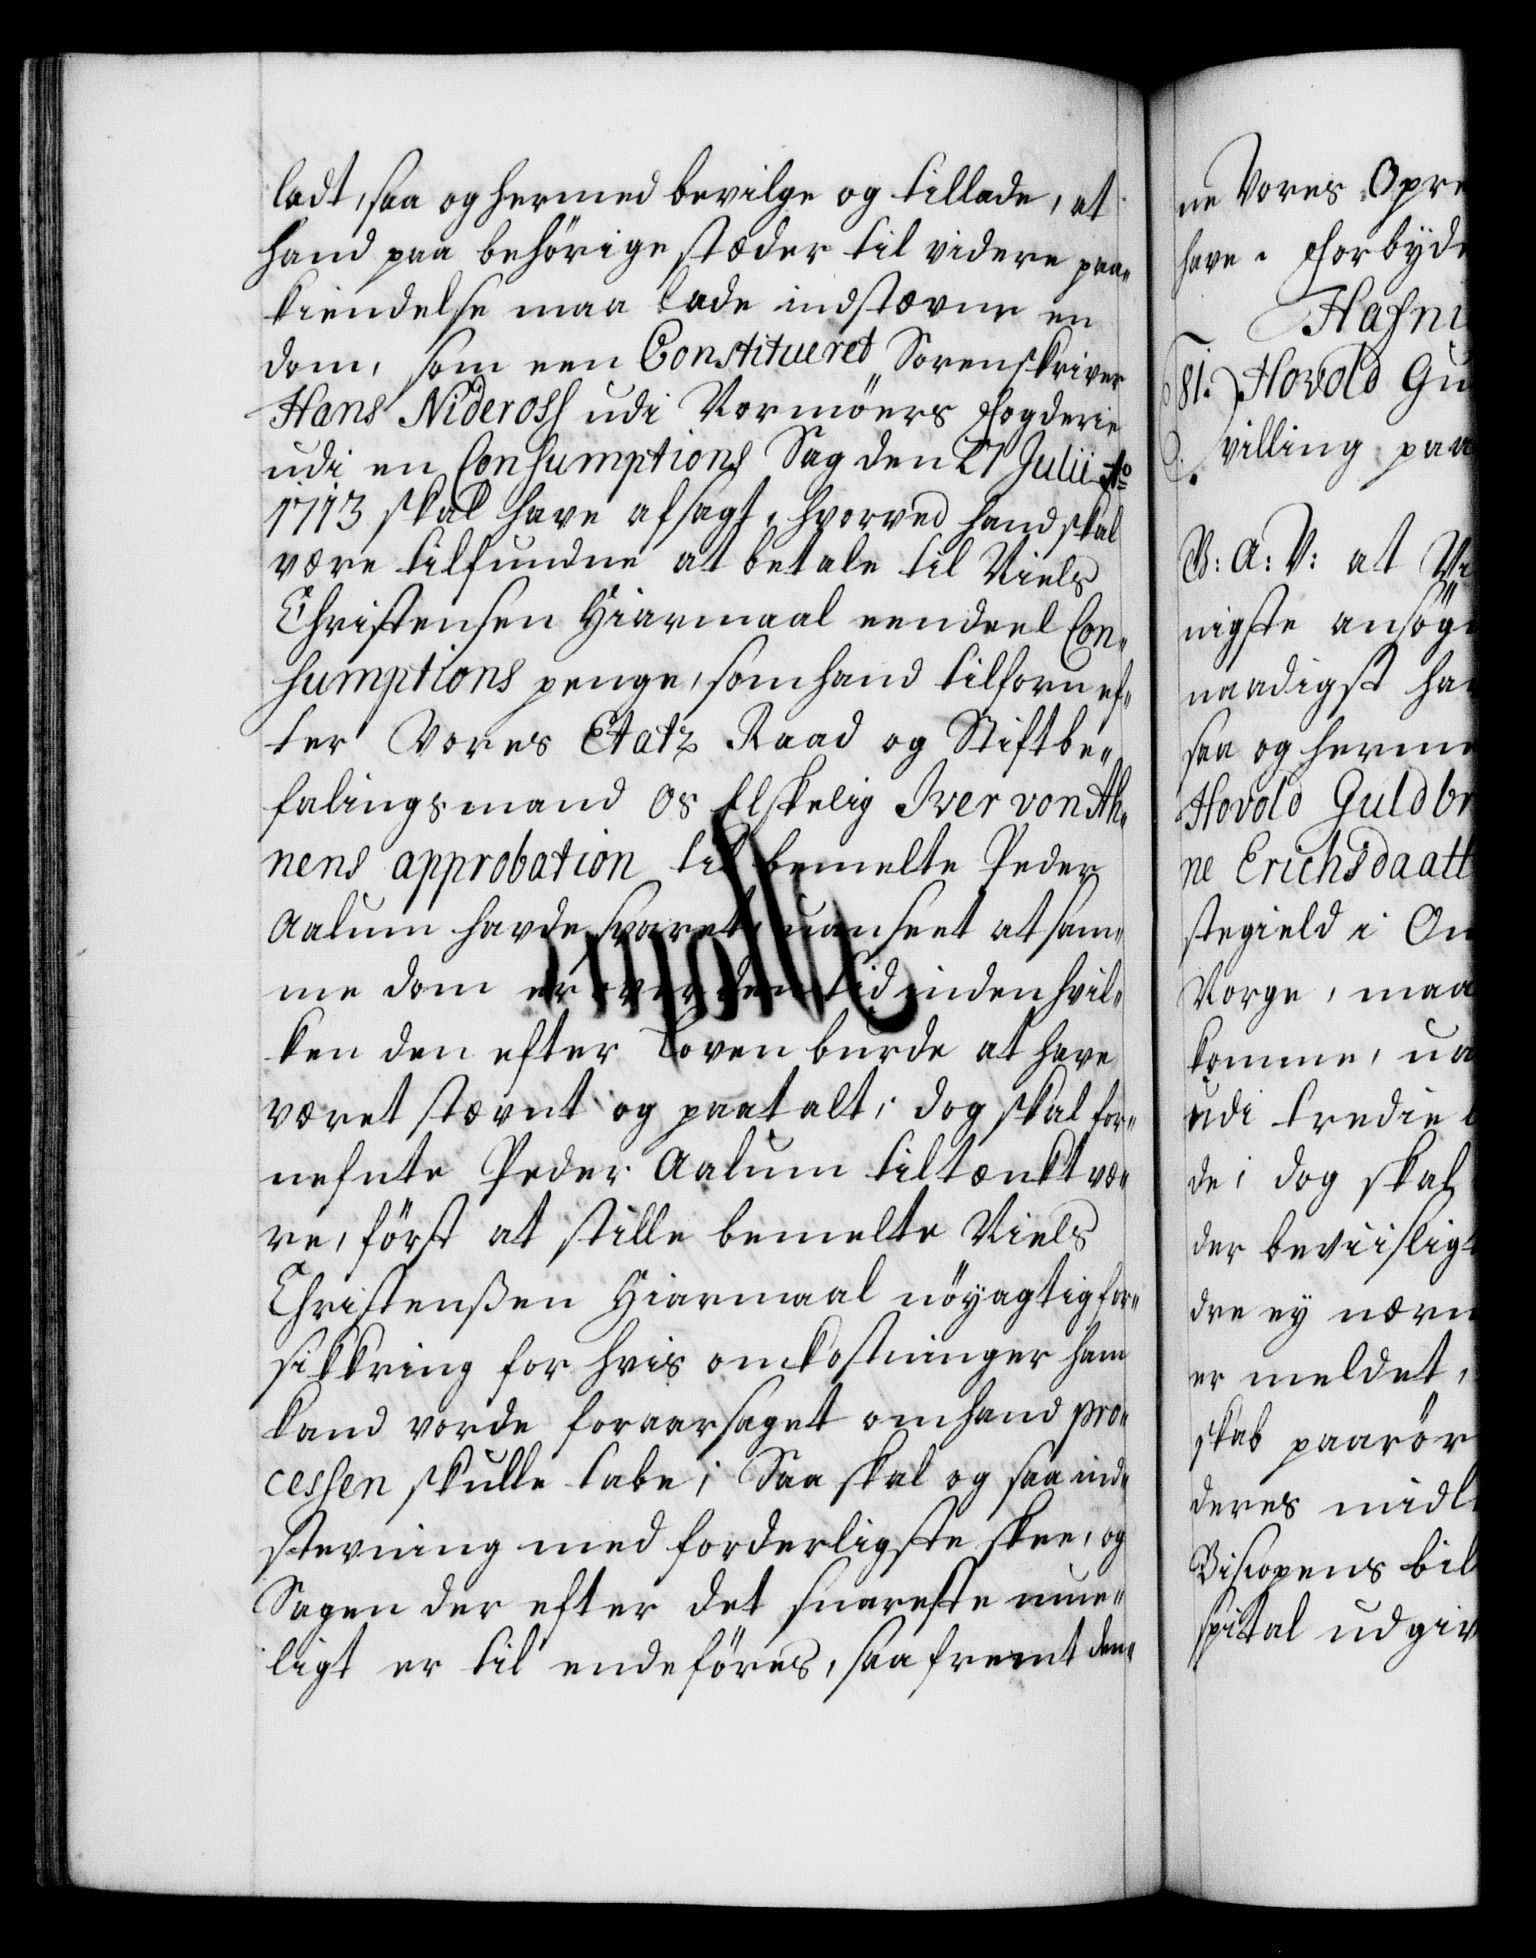 ladt, saa og hermed bevilge og tillade, at
hand paa behörige stæder til videre paa„
kiendelse maa lade indstævne en
dom, som een Constitueret Sorenskriver
Hans Nideross udi Normöers Fogderie
udi en Consumptions Sag den 21 Julii Ao
1713 skal have afsagt, hvorved hand skal
være tilfunden at betale til Niels
Christensen Hiarmaal eendeel Con„
sumptions penge, som hand tilforn ef„
ter Vores Etatz Raad og Stiftbe„
falingsmand Os Elskelig Iver von Ah„
nens approbation til bemelte Peder
Aalum havde svaret, uanseet at sam„
me dom er over den tid inden hvil„
ken den efter Loven burde at have
været stævnt og paatalt; dog skal for„
nefnte Peder Aalum tiltænkt væ„
re, först at stille bemelte Niels
Christenßen Hiarmaal nöyagtig for„
sikkring for hvis omkostninger ham
kand vorde foraarsaget om hand pro„
cessen skulle tabe; Saa skal og saa ind„
stevning med forderligste skee, og
Sagen der efter det snareste mue„
ligt er til endeföres, saa fremt den„
ne Vores Opre
have. Forbyde
Hafni
81. Hovold Gu
villing paa
V: A: V: at Vi
nigste ansög
naadigst ha
saa og herme
Hovold Guldbr
ne Erichsdaatt
stegield i
Norge, maa
komme, ua
udi tredie l
de; dog skal
der beviislig
dre ey nærm
er meldet,
skab paarör
deres midl
Biscopens bil
spital udgiv